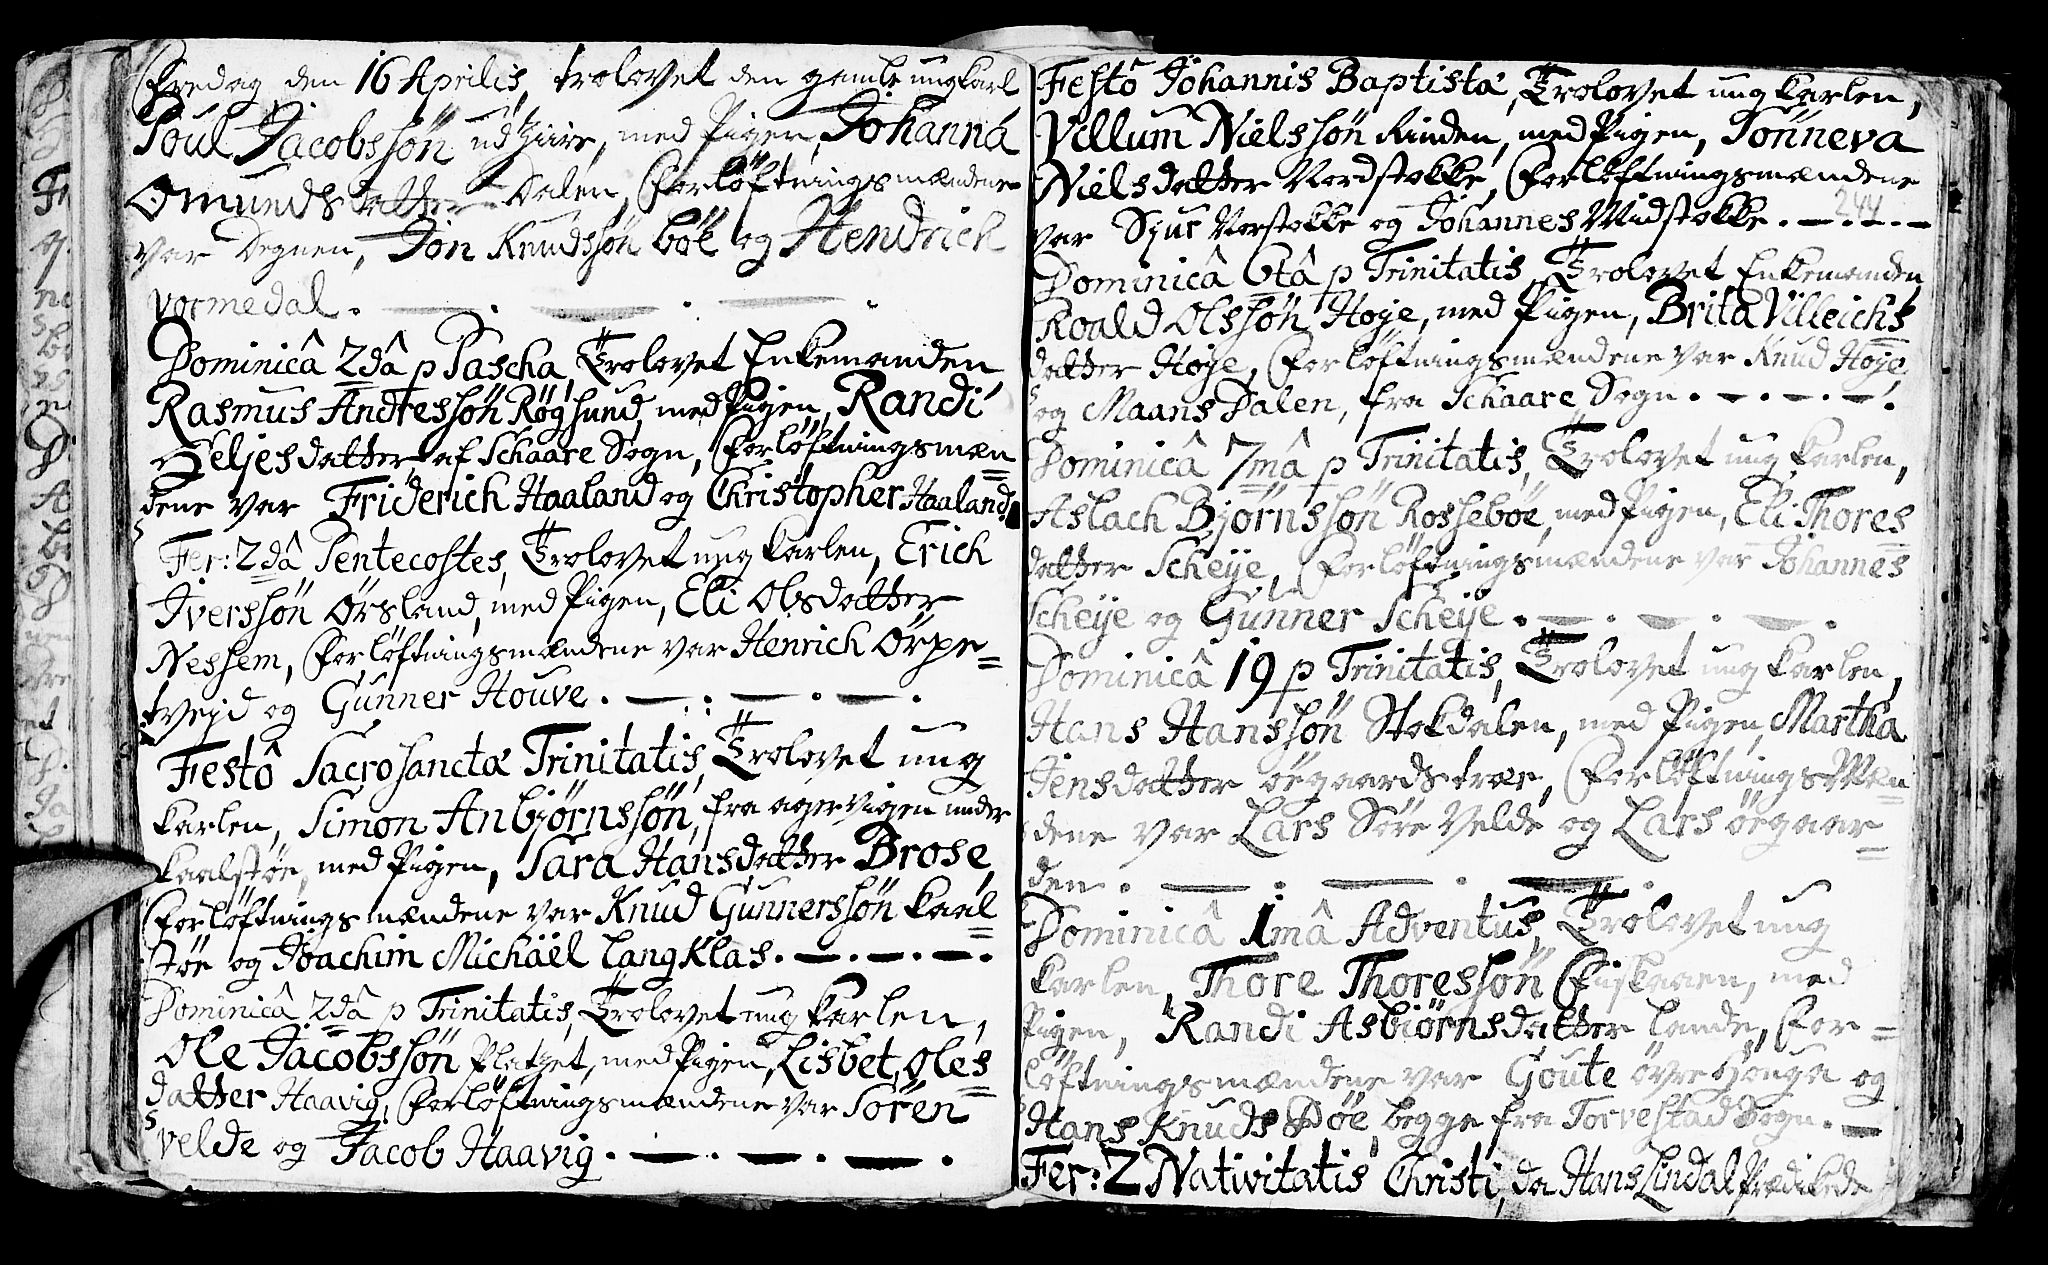 Fredag den 16 Aprilis, trolovet den gamle ungkarl
Poul Jacobssøn ud Ziire, med Pigen, Johanna
Omundsdatter Dalen, Forløftningsmændene
var Degnen, Jon Knudssøn bøe og Hendrich
vormedal.
Dominicâ 2dâ p Pascha, Trolovet Enkemanden
Rasmus Andressøn Røgsund, med Pigen, Randi
Seljesdatter af Schaare Sogn, Forløftningsmæn=
dene var Friderich Haaland og Christopher Haaland.
Fer: 2dâ Pentecostes, Trolovet ungkarlen, Erich
Iverssøn Ørsland, med Pigen, Eli Olsdatter
Nessem, Forløftningsmændene var Henrich Ørpe=
tvejd og Gunner Houve.
Festô Sacrosanctæ Trinitatis, Trolovet ung
karlen, Simon Anbjørnssøn, fra agervigen under
kaalstøe, med Pigen, Sara Hansdatter Brose,
Forløftningsmændene var Knud Gunnerssøn kaal=
støe og Joachim Michaël Langklas.
Dominicâ 2dâ p Trinitatis, Trolovet ungkarlen,
Ole Jacobssøn Platzet, med Pigen, Lisbet, Oles=
datter Haavig, Forløftningsmændene var Søren
velde og Jacob Haavig.
Festô Johannis Baptistæ, Trolovet ungkarlen,
Villum Nielssøn Rinden, med Pigen, Tønneva
Nielsdatter Nordstokke, Forløftningsmændene
244
var Sjur Norstokke og Johannes Midstokke.
Dominicâ 6tâ p Trinitatis, Trolovet Enkemanden
Roald Olssøn Høje, med Pigen, Brita Villeichs=
datter Høje, Forløftningsmændene var Knud Høje
og Maans Dalen, fra Schaare Sogn.
Dominicâ 7mâ p Trinitatis, Trolovet ungkarlen,
Aslach Bjørnssøn Rossebøe, med Pigen, Eli Thores=
datter Scheije, Forløftningsmændene var Johannes
Scheije og Gunner Scheije.
Dominicâ 19 p Trinitatis, Trolovet ungkarlen,
Hans Hanssøn Stokdalen, med Pigen, Martha
Jensdatter øegaardstræe, Forløftnings Mæn=
dene var Lars Søre Velde og Lars øegaar=
den.
Dominicâ 1mâ Adventus, Trolovet ung
karlen, Thore Thoressøn Fiskaaen, med
Pigen, Randi Asbiørnsdatter lande, For=
løftningsmændene var Goute øvre Houga og
Hans Knuds Bøe, begge fra Torvestad Sogn.
Fer: 2 Nativitatis Christi, da Hans Lindal prædikede